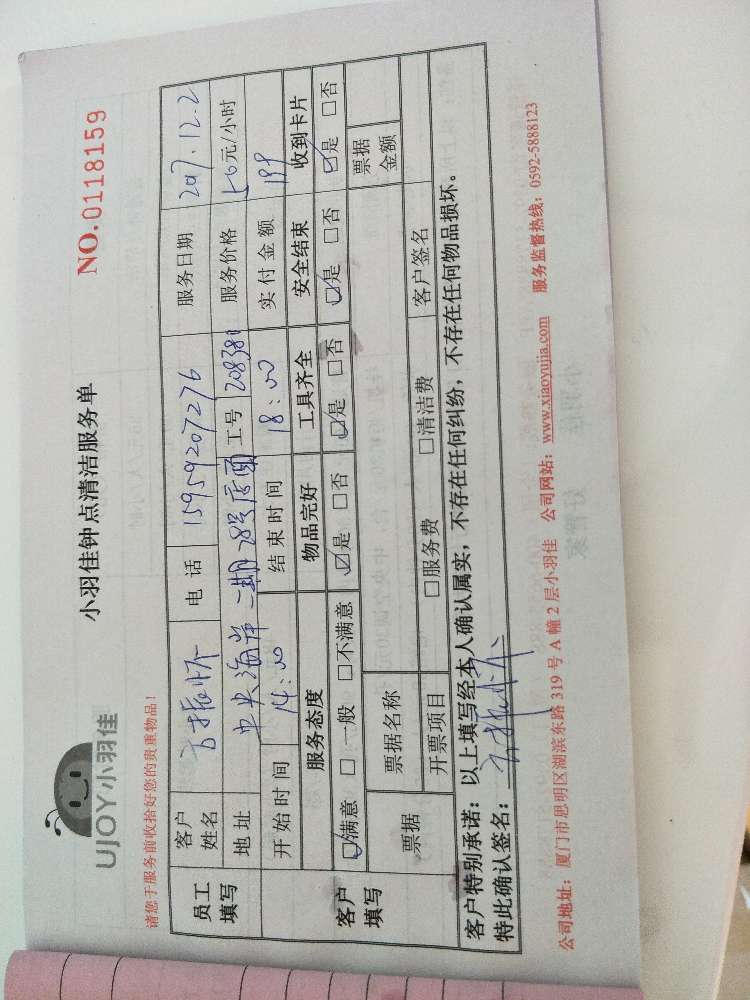 UJOY小羽佳
小羽佳钟点清洁服务单
NO.0118159
请您于服务前收拾好您的贵重物品！
员工填写
客户姓名 方振怀 电话 15959207276 服务日期 2017.12.2
地址 中央海岸二期28号店面 工号 208380 服务价格 50元/小时
开始时间 14:00 结束时间 18:00 实付金额 199
客户填写
服务态度 物品完好 工具齐全 安全结束 收到卡片
☑满意 □一般 □不满意 ☑是 □否 ☑是 □否 ☑是 □否 ☑是 □否
票据 票据名称 票据金额
开票项目 □服务费 □清洁费 客户签名
客户特别承诺：以上填写经本人确认属实，不存在任何纠纷，不存在任何物品损坏。
特此确认签名：
公司地址：厦门市思明区湖滨东路319号A幢2层小羽佳 公司网站：www.xiaoyujia.com 服务监督热线：0592-5888123